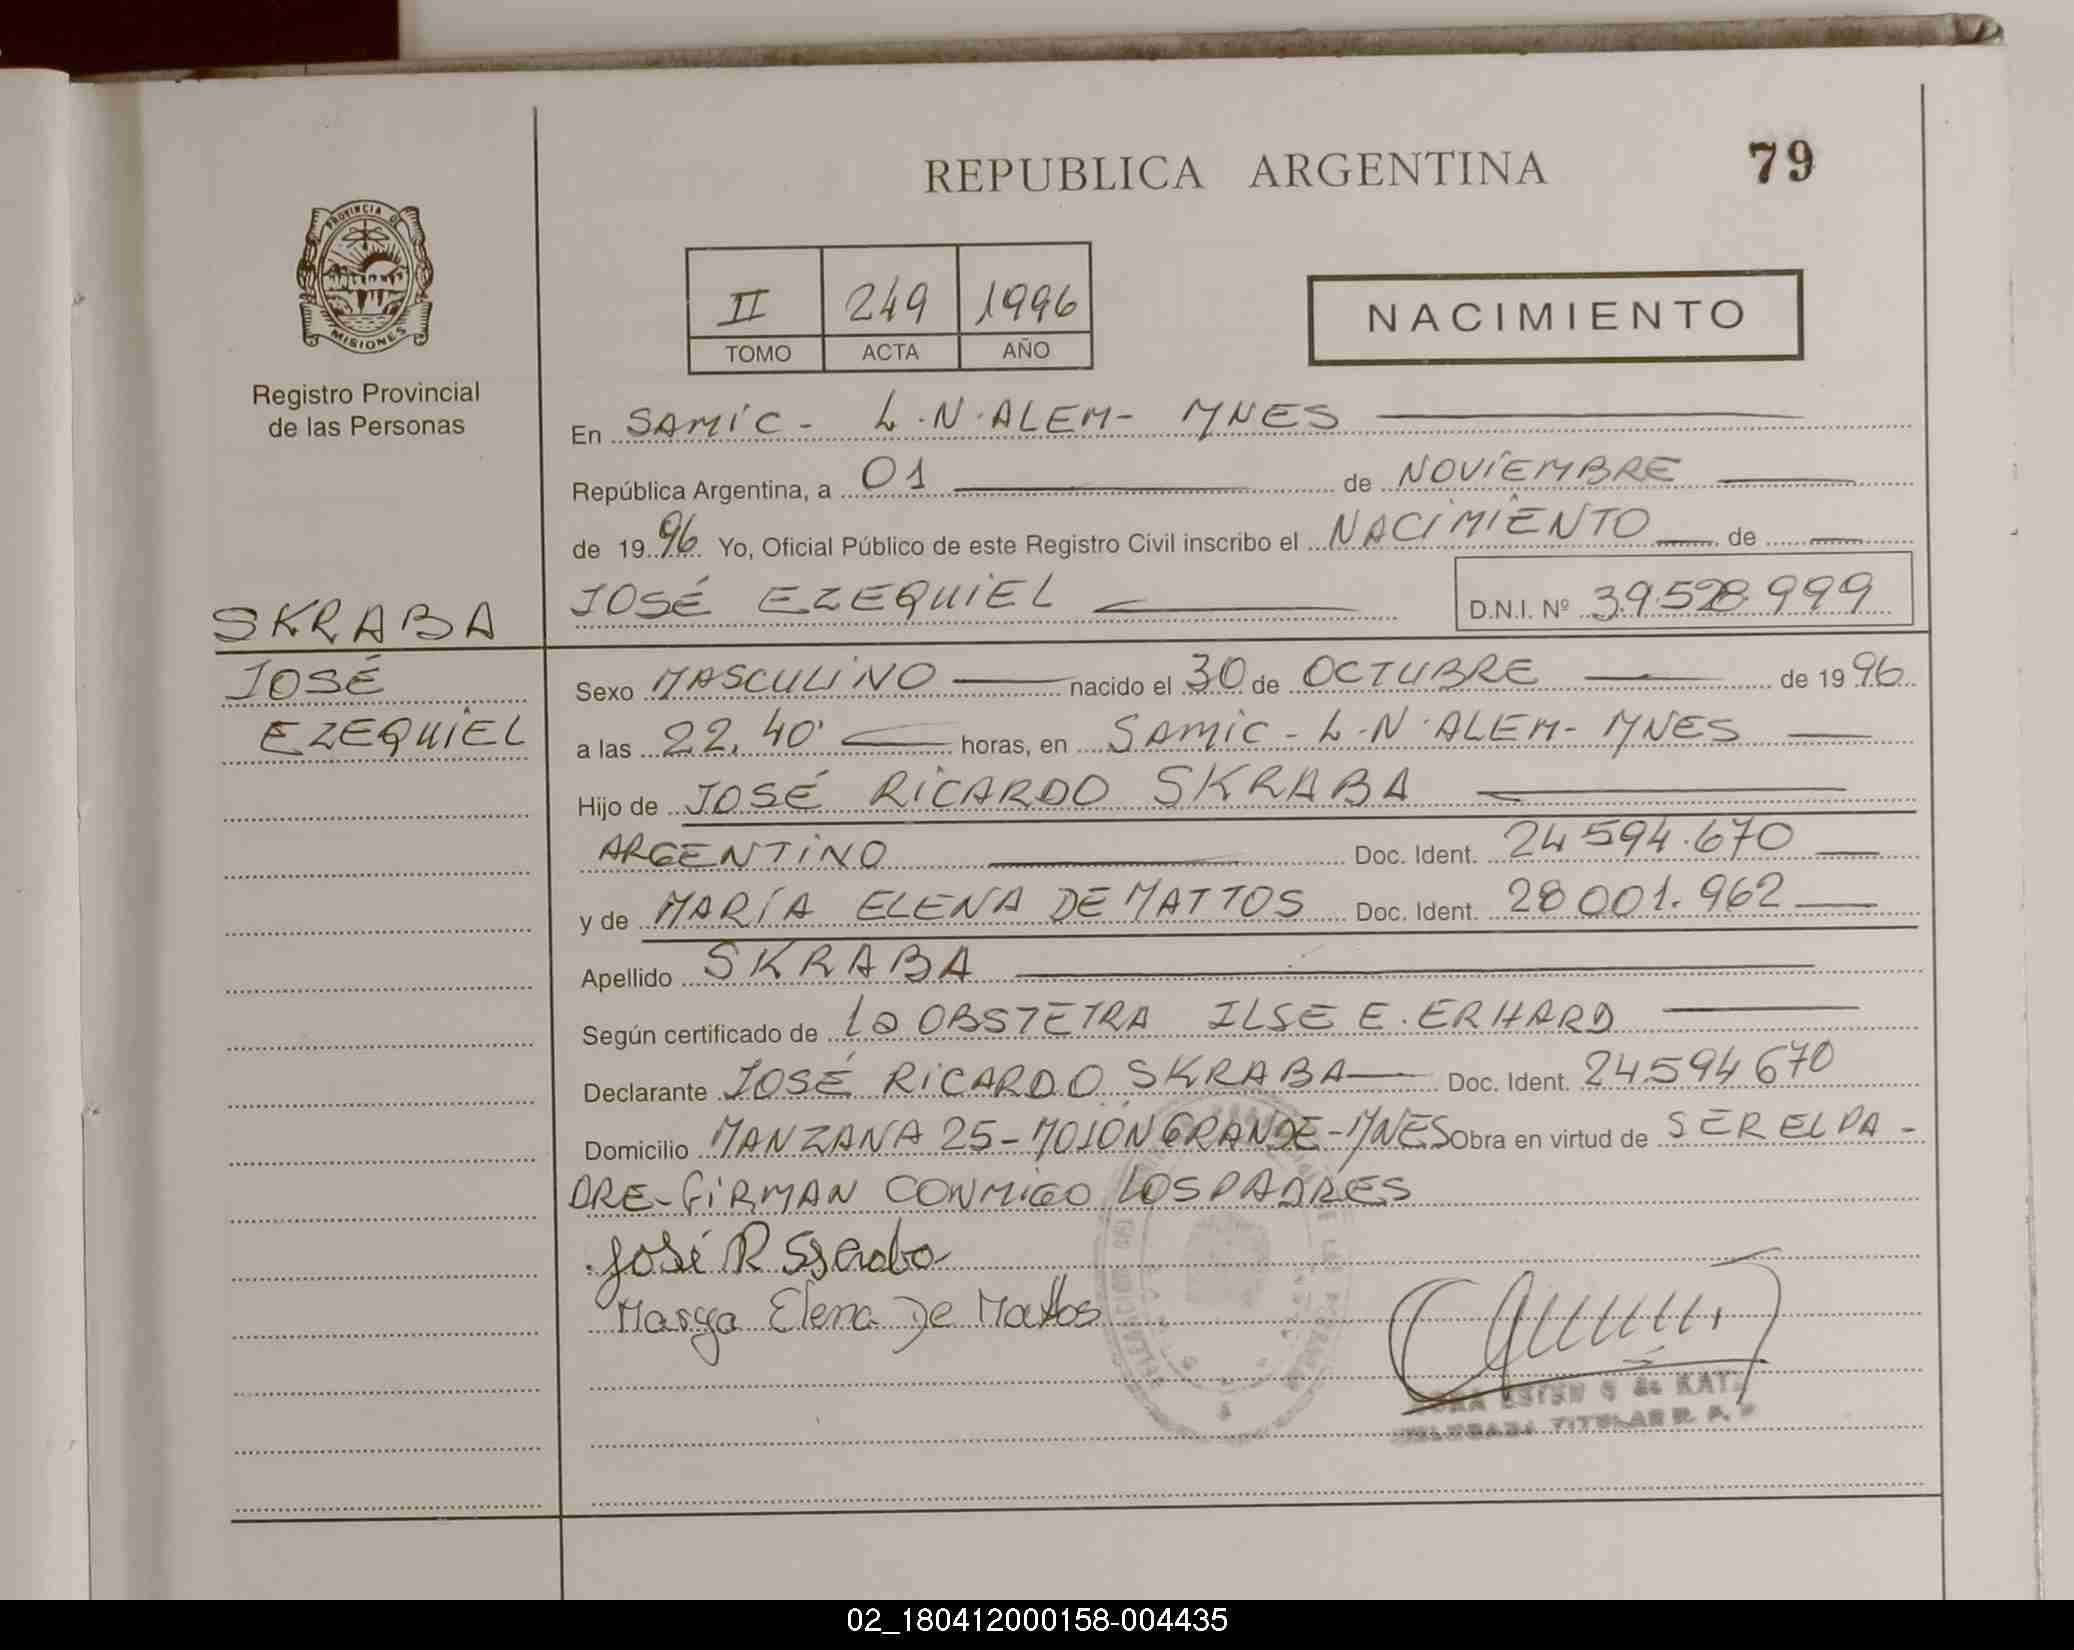 REPUBLICA ARGENTINA
79
PROVINCIA DE
MISIONES
Registro Provincial
de las Personas
II 249 1996
TOMO ACTA AÑO
NACIMIENTO
En SAMIC - L.N.ALEM- MNES
República Argentina, a 01 de NOVIEMBRE
de 1996 Yo, Oficial Público de este Registro Civil inscribo el NACIMIENTO de
JOSÉ EZEQUIEL D.N.I. Nº 39.528.999
SKRABA
JOSÉ
EZEQUIEL
Sexo MASCULINO nacido el 30 de OCTUBRE de 1996
a las 22.40' horas, en SAMIC - L.N.ALEM- MNES
Hijo de JOSÉ RICARDO SKRABA
ARGENTINO Doc. Ident. 24594.670
y de MARÍA ELENA DE MATTOS Doc. Ident. 28001.962
Apellido SKRABA
Según certificado de La OBSTETRA ILSE E. ERHARD
Declarante JOSÉ RICARDO SKRABA Doc. Ident. 24594670
Domicilio MANZANA 25-MOJON GRANDE-MNES Obra en virtud de SER EL PA-
DRE-FIRMAN CONMIGO LOS PADRES
José R
Elena De Mattos
TITULAR R. P.
02_180412000158-004435